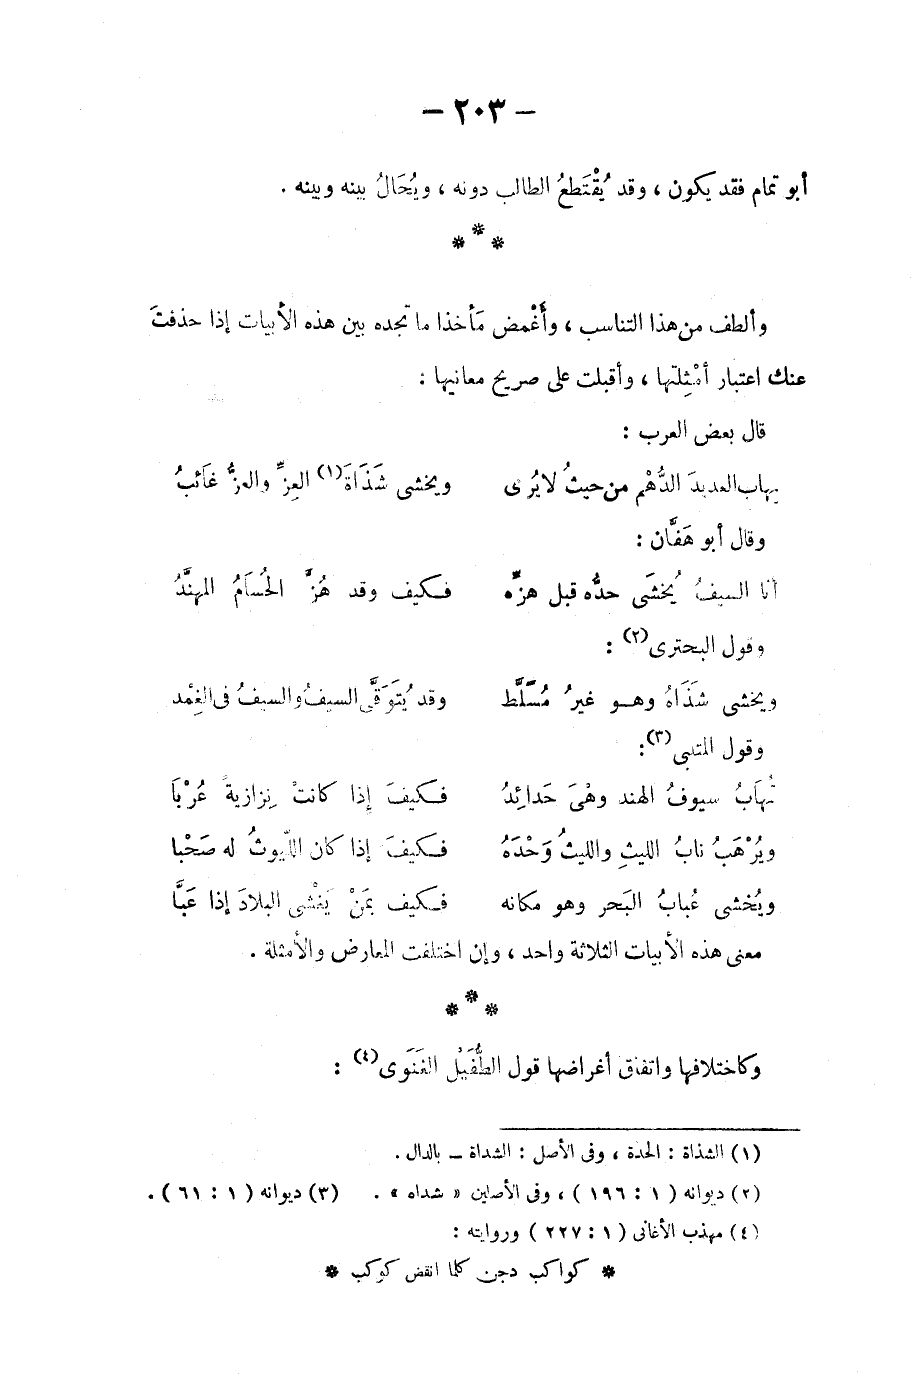 – ٢٠٣ –
أبو تمام فقد يكون ، وقد يُقْتَطعُ الطالب دونه ، ويُحَالُ بينه وبينه .
* * *
وألطف من هذا التناسب ، وأَغْمض مَأخذا ما تجده بين هذه الأبيات إذا حذفتَ
عنك اعتبار أمْثِلتها ، وأقبلت على صريح معانيها :
قال بعض العرب :
يهاب العديدَ الدَّهْم من حيثُ لا يُرى ويخشى شَذَاةَ(١) العِزِّ والعزُّ غَائبُ
وقال أبو هَفَّان :
أنا السيفُ يُخشَى حدُّه قبل هزِّه فكيف وقد هُزَّ الحُسَامُ المهنَّدُ
وقول البحترى(٢) :
ويخشى شَذَاهُ وهو غيرُ مُسَلَّط وقد يُتَوَقَّى السيفُ والسيفُ فى الغِمْد
وقول المتنبى(٣) :
تُهَابُ سيوفُ الهند وهْىَ حَدائِدُ فكيفَ إِذا كانتْ نِزاريةً عُرْبَا
ويُرْهَبُ نابُ الليثِ والليثُ وَحْدَهُ فكيفَ إذا كان اللّيوثُ له صَحْبا
ويُخشى عُبابُ البَحر وهو مكانه فكيف بمَنْ يَغْشى البلادَ إذا عَبَّا
معنى هذه الأبيات الثلاثة واحد ، وإن اختلفت المعارض والأمثلة .
* * *
وكاختلافها واتفاق أغراضها قول الطُّفَيْل الغَنَوى(٤) :
(١) الشذاة : الحدة ، وفى الأصل : الشداة – بالدال .
(٢) ديوانه ( ١ : ١٩٦ ) ، وفى الأصلين « شداه » . (٣) ديوانه ( ١ : ٦١ ) .
(٤) مهذب الأغانى ( ١ : ٢٢٧ ) وروايته :
* كواكب دجن كلما انقض كوكب *